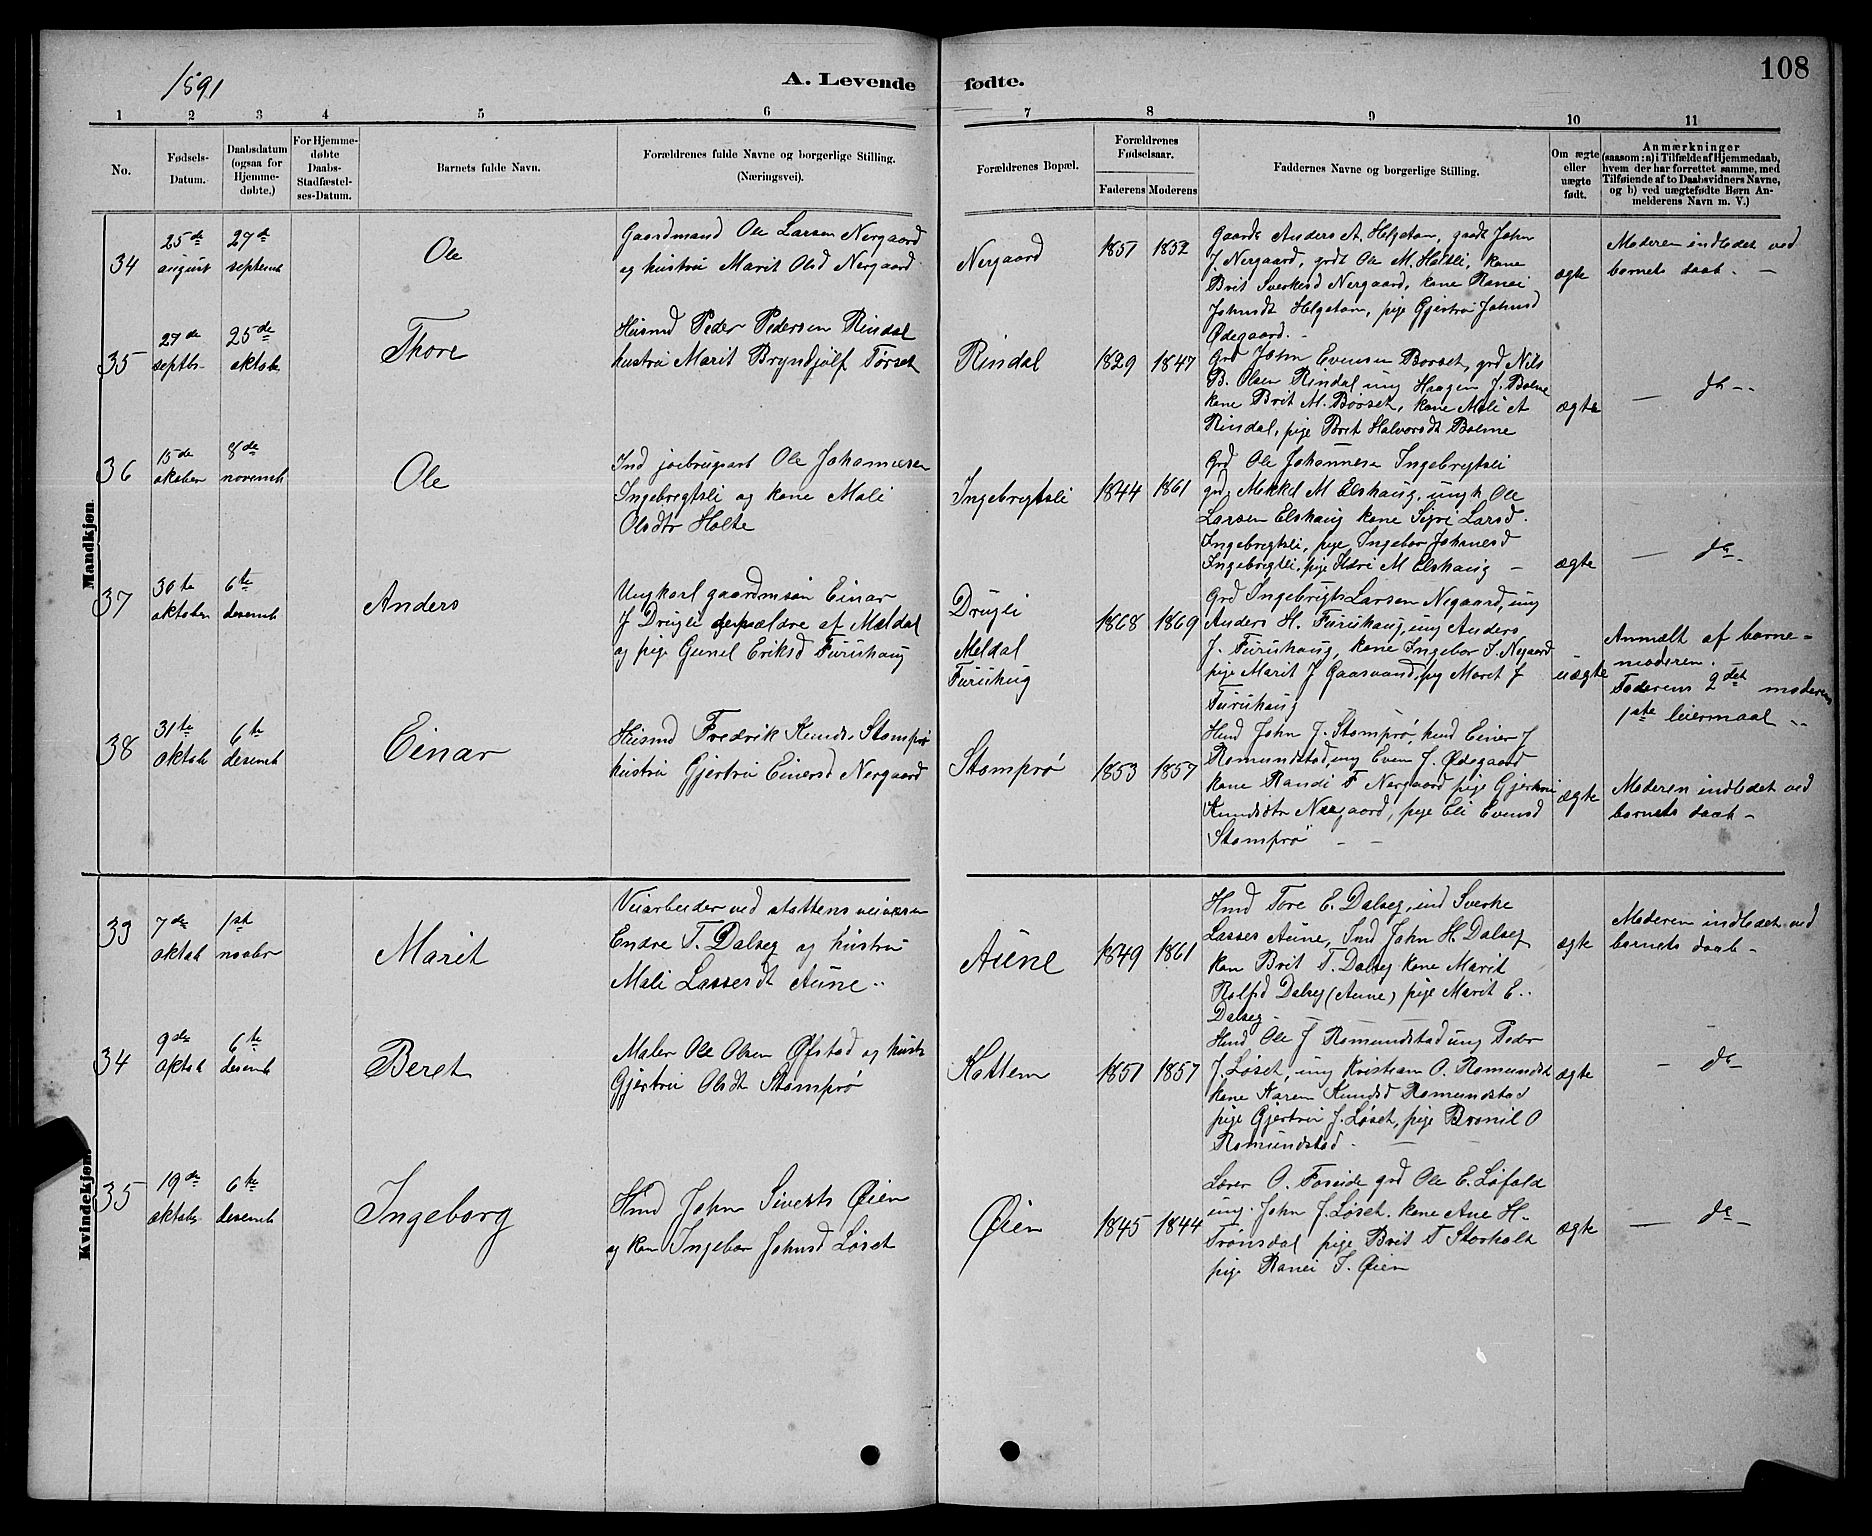 1891
A. Levende fødte.
108
1 2 3 4 5 6 7 8 9 10 11
No.
Fødsels-
Datum.
Daabsdatum
(ogsaa for
Hjemme-
døbte.)
For Hjemme-
døbte
Daabs-
Stadfæstel-
ses-Datum.
Barnets fulde Navn.
Forældrenes fulde Navne og borgerlige Stilling.
(Næringsvei).
Forældrenes Bopæl.
Forældrenes
Fødselsaar.
Faderens Moderens
Faddernes Navne og borgerlige Stilling.
Om ægte
eller
uægte
født.
Anmærkninger
(saasom: a) i Tilfælde af Hjemmedaab,
hvem der har forrettet samme, med
Tilføiende af to Daabsvidners Navne,
og b) ved uægtefødte Børn An-
melderens Navn m. V.)
Mandkjøn
34
25de
august
27de
septemb
Ole
Gaardmand Ole Larsen Nergaard
og hustru Marit Olsd Nergaard
Nergaard
1857 1852
Gaardb Anders A. Helgetøn, gaardb John
J. Nergaard, grdb Ole M. Holtli, kone
Brit Sverkesd Nergaard, kone Ranei
Johnsdt Helgetøn, pige Gjertru Johnsd
Ødegaard. -
ægte
Moderen indledet ved
barnets daab. -
35
27de
septbr
25de
oktobr
Thore
Husmd Peder Pedersen Rindal
hustru Marit Bryndjulf Tørset
Rindal
1829 1847
Grd John Evensen Børset, grd Nils
B. Olsen Rindal ung Haagen J. Bolme
kone Brit M. Børset, kone Mali A
Rindal, pige Brit Halvorsdt Bolme
ægte
- do -
36
15de
oktober
8de
novemb
Ole
Ind jordbrugsarb Ole Johannesen
Ingebregtsli og kone Mali
Olsdtr Holte
Ingebregtsli
1844 1861
Grd Ole Johannesen Ingebregtsli
grd Mikkel M Elshaug, ungk Ole
Larsen Elshaug kone Sigri Larsd.
Ingebregtsli, pige Ingebor Johanesd
Ingebregtsli, pige Kari M Elshaug -
ægte
- do -
37
30te
oktober
6te
desemb
Anders
Ungkarl gaardmsøn Einar
J Drugli af Meldal
og pige Gunel Eriksd Furuhaug
Drugli
Meldal
Furuhug
1868 1869
Grd Ingebrigt Larsen Negaard, ung
Anders H. Furuhaug, ung Anders
J. Furuhaug, kone Ingebor J. Negaard
pige Marit J Gaasvand, pig Marit J
Furuhaug
uægte
Anmælt af barne-
moderen.
Faderens 2det moderens
1ste leiermaal -
38
31te
oktob
6te
desemb
Einar
Husmd Fredrik Knuds. Stomprø
hustru Gjertru Einersd Nergaard
Stomprø
1853 1857
Husd John J. Stomprø, husd Einer J
Romundstad, ung Even J. Ødegaard
kone Randi F Nergaard pige Gjertrui
Knudsdtr Nergaard, pige Eli Evensd
Stomprø - -
ægte
Moderen indledet ved
barnets daab -
Kvindekjøn
33
7de
oktob
1st
novbr
Marit
Veiarbeider ved stattens veivæsen
Endre T. Dalseg og hustru
Mali Lassesdt Aune
Aune
1849 1861
Husd Tore E. Dalseg, ind Sverke
Lasses Aune, Ind John H. Dalseg
kon Brit T. Dalseg kone Marit
Rolfsd Dalseg (Aune) pige Marit E.
Dalseg -
ægte
Moderen indledet ved
barnets daab -
34
9de
oktob
6te
desemb
Beret
Maler Ole Olsen Øfstad og hust
Gjertru Olsdt Stomprø
Kattem
1851 1857
Husd Ole J Romundstad ung Peder
J. Løset, ung Kristian O. Romundst
kone Karen Knudsd Romundstad
pige Gjertru J. Løset, pige Brønil O
Romundstad -
ægte
- do -
35
19de
oktobr
6te
desemb
Ingeborg
Husd John Siverts Øien
og kon Ingebor Johnsd Løset
Øien
1845 1844
Lærer O. Foseide grd Ole E. Løfald
ung. John J. Løset. kone Ane H.
Trønsdal pige Brit T Storholt
pige Ranei S. Øien
ægte
- do -